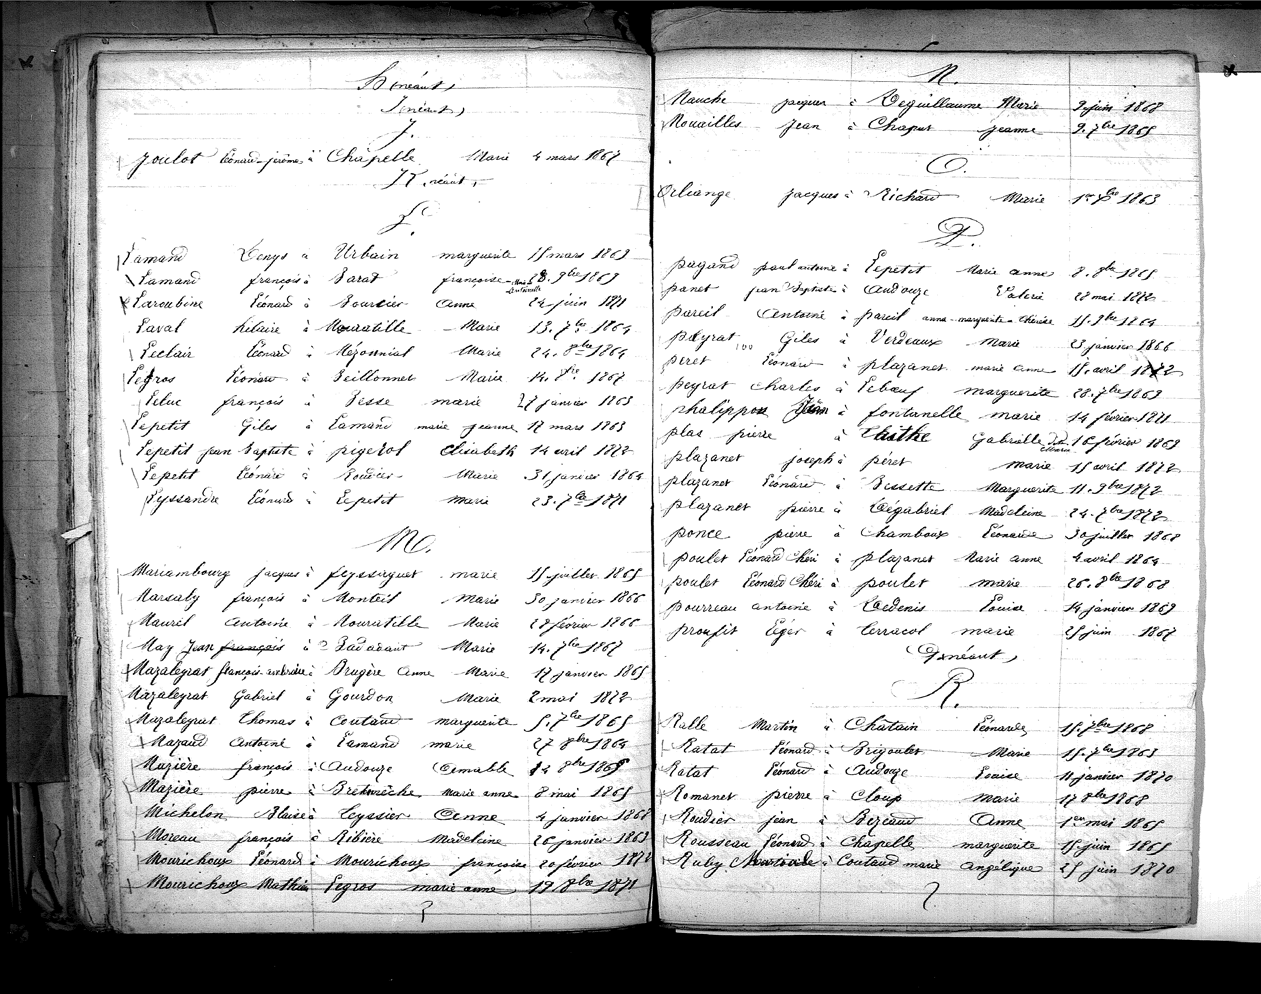 H. néant,
I néant,
J.
Joulot Léonard-jérôme à Chapelle Marie 4 mars 1867
K. néant,
L.
Lamand Denys à Urbain marguerite 15 mars 1863
Lamand françois à Sarat françoise 28. 9bre 1863
Laroubine Léonard à Boursier Anne 24 juin 1871
Laval hilaire à Mouratille Marie 13. 7bre 1864
Leclair Léonard à Mézonnial Marie 24. 8bre 1864
Legros Léonard à Peillonnet Marie 14. 1867
Leluc françois à Besse marie 27 janvier 1863
Lepetit Giles à Lamand marie jeanne 17 mars 1863
Lepetit jean baptiste à pigerol Elisabeth 14 avril 1872
Lepetit Léonard à Roudier Marie 31 janvier 1864
Leyssandre Léonard à Lepetit marie 23. 7bre 1871
M.
Mariambourg jacques à marie 15 juillet 1865
Marsaly françois à Monteil Marie 30 janvier 1866
Mauril Antoine à Mouratille Marie 28 février 1866
May Jean françois à Badadant Marie 14. 7bre 1867
Mazaleyrat françois à Brugère Anne Marie 17 janvier 1865
Mazaleyrat Gabriel à Gourdon Marie 2 mai 1872
Mazaleyrat Thomas à Coutaud marguerite 5. 7bre 1865
Mazaud Antoine à Lamand marie 27 8bre 1864
Mazière françois à Audouze Aimable 14 8bre 1865
Mazière pierre à Bretnrèche Marie anne 8 mai 1865
Michelon Blaise à Teyssier Anne 4 janvier 1868
Moreau françois à Ribière Madeleine 26 janvier 1863
Mourichoux Léonard à Mourichoux françoise 20 février 1872
Mourichoux Mathieu Legros marie anne 19 8bre 1871
N.
Nauche jacques à Deguillaume Marie 9 juin 1868
Nouailles Jean à Chaput jeanne 9. 7bre 1865
O.
Orliange jacques à Richard Marie 1er 7bre 1863
P.
pagand paul antoine à Lepetit Marie anne 8. 8bre 1865
panet jean baptiste à Audouze Valerie 28 mai 1872
pareil Antoine à pareil anna marguerite thérèse 15. 9bre 1864
peyrat Giles à Verdeaux Marie 23 janvier 1866
peret Léonard à plazanet marie anne 15. avril 1872
peyrat Charles à Lebœuf marguerite 28. 7bre 1863
phalippon Jean à fontanelle marie 14 février 1871
plas pierre à Gabrielle 16 février 1863
plazanet joseph à péret marie 15 avril 1872
plazanet Léonard à Bessette Marguerite 11. 9bre 1872
plazanet pierre à Légabriel Madeleine 24. 7bre 1872
ponce pierre à Chamboux Léonarde 30 juillet 1868
poulet Léonard Chéri à plazanet Marie anne 4 avril 1864
poulet Léonard Chéri à poulet marie 26. 8bre 1868
pourreau antoine à Ledenis Louise 14 janvier 1869
proufit Eger à terracol marie 25 juin 1867
Q néant,
R.
Ralle Martin à Chatain Léonarde 15. 7bre 1868
Ratat Léonard à Brijoulet Marie 15. 7bre 1863
Ratat Léonard à Audouze Louise 11 janvier 1870
Romanet pierre à Cloup marie 17 8bre 1868
Roudier jean à Bezeaud Anne 1er mai 1865
Rousseau Léonard à Chapelle marguerite 15. juin 1865
Ruby à Coutaud marie Angélique 25 juin 1870